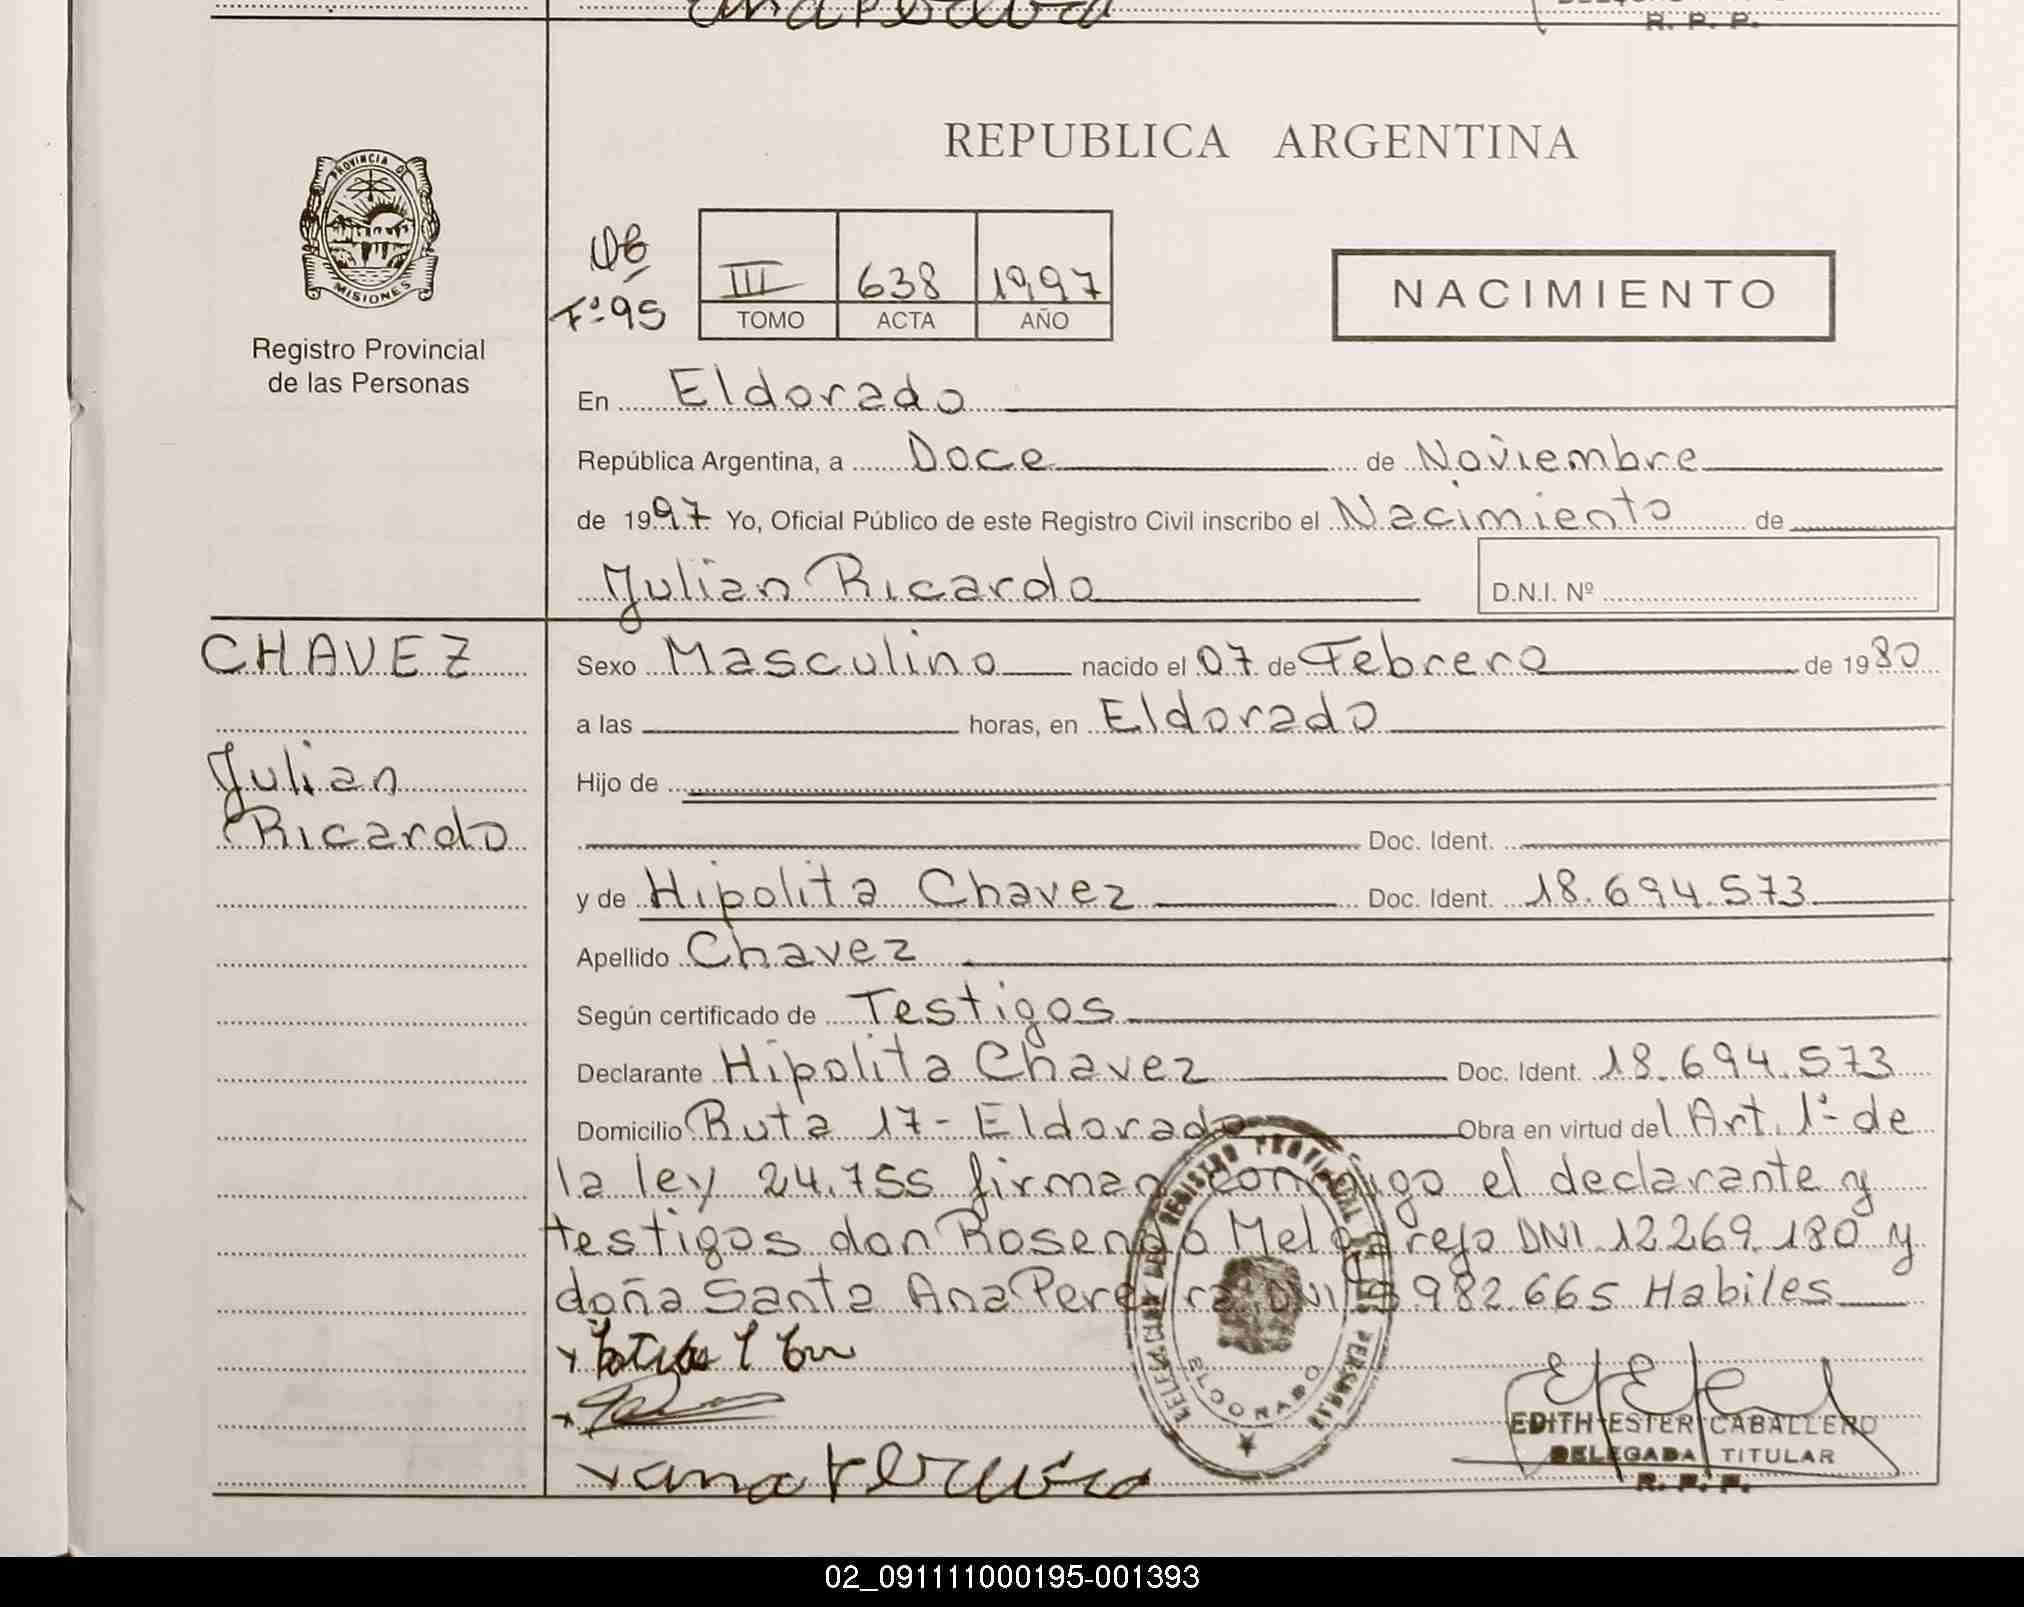 R. P. P.
REPUBLICA ARGENTINA
PROVINCIA DE
MISIONES
Registro Provincial
de las Personas
Fº 95
III 638 1997
TOMO ACTA AÑO
NACIMIENTO
En Eldorado
República Argentina, a Doce de Noviembre
de 1997 Yo, Oficial Público de este Registro Civil inscribo el Nacimiento de
Julian Ricardo D.N.I. Nº
CHAVEZ
Julian
Ricardo
Sexo Masculino nacido el 07 de Febrero de 1980
a las horas, en Eldorado
Hijo de
Doc. Ident.
y de Hipolita Chavez Doc. Ident. 18.694.573
Apellido Chavez
Según certificado de Testigos
Declarante Hipolita Chavez Doc. Ident. 18.694.573
Domicilio Ruta 17 - Eldorado Obra en virtud del Art. 1º de
la ley 24.755 firman conmigo el declarante y
testigos don Rosendo Melgarejo DNI 12269.180 y
doña Santa Ana Pereyra DNI 982.665 Habiles
ELDORADO
EDITH ESTER CABALLERO
DELEGADA TITULAR
R. P. P.
02_091111000195-001393